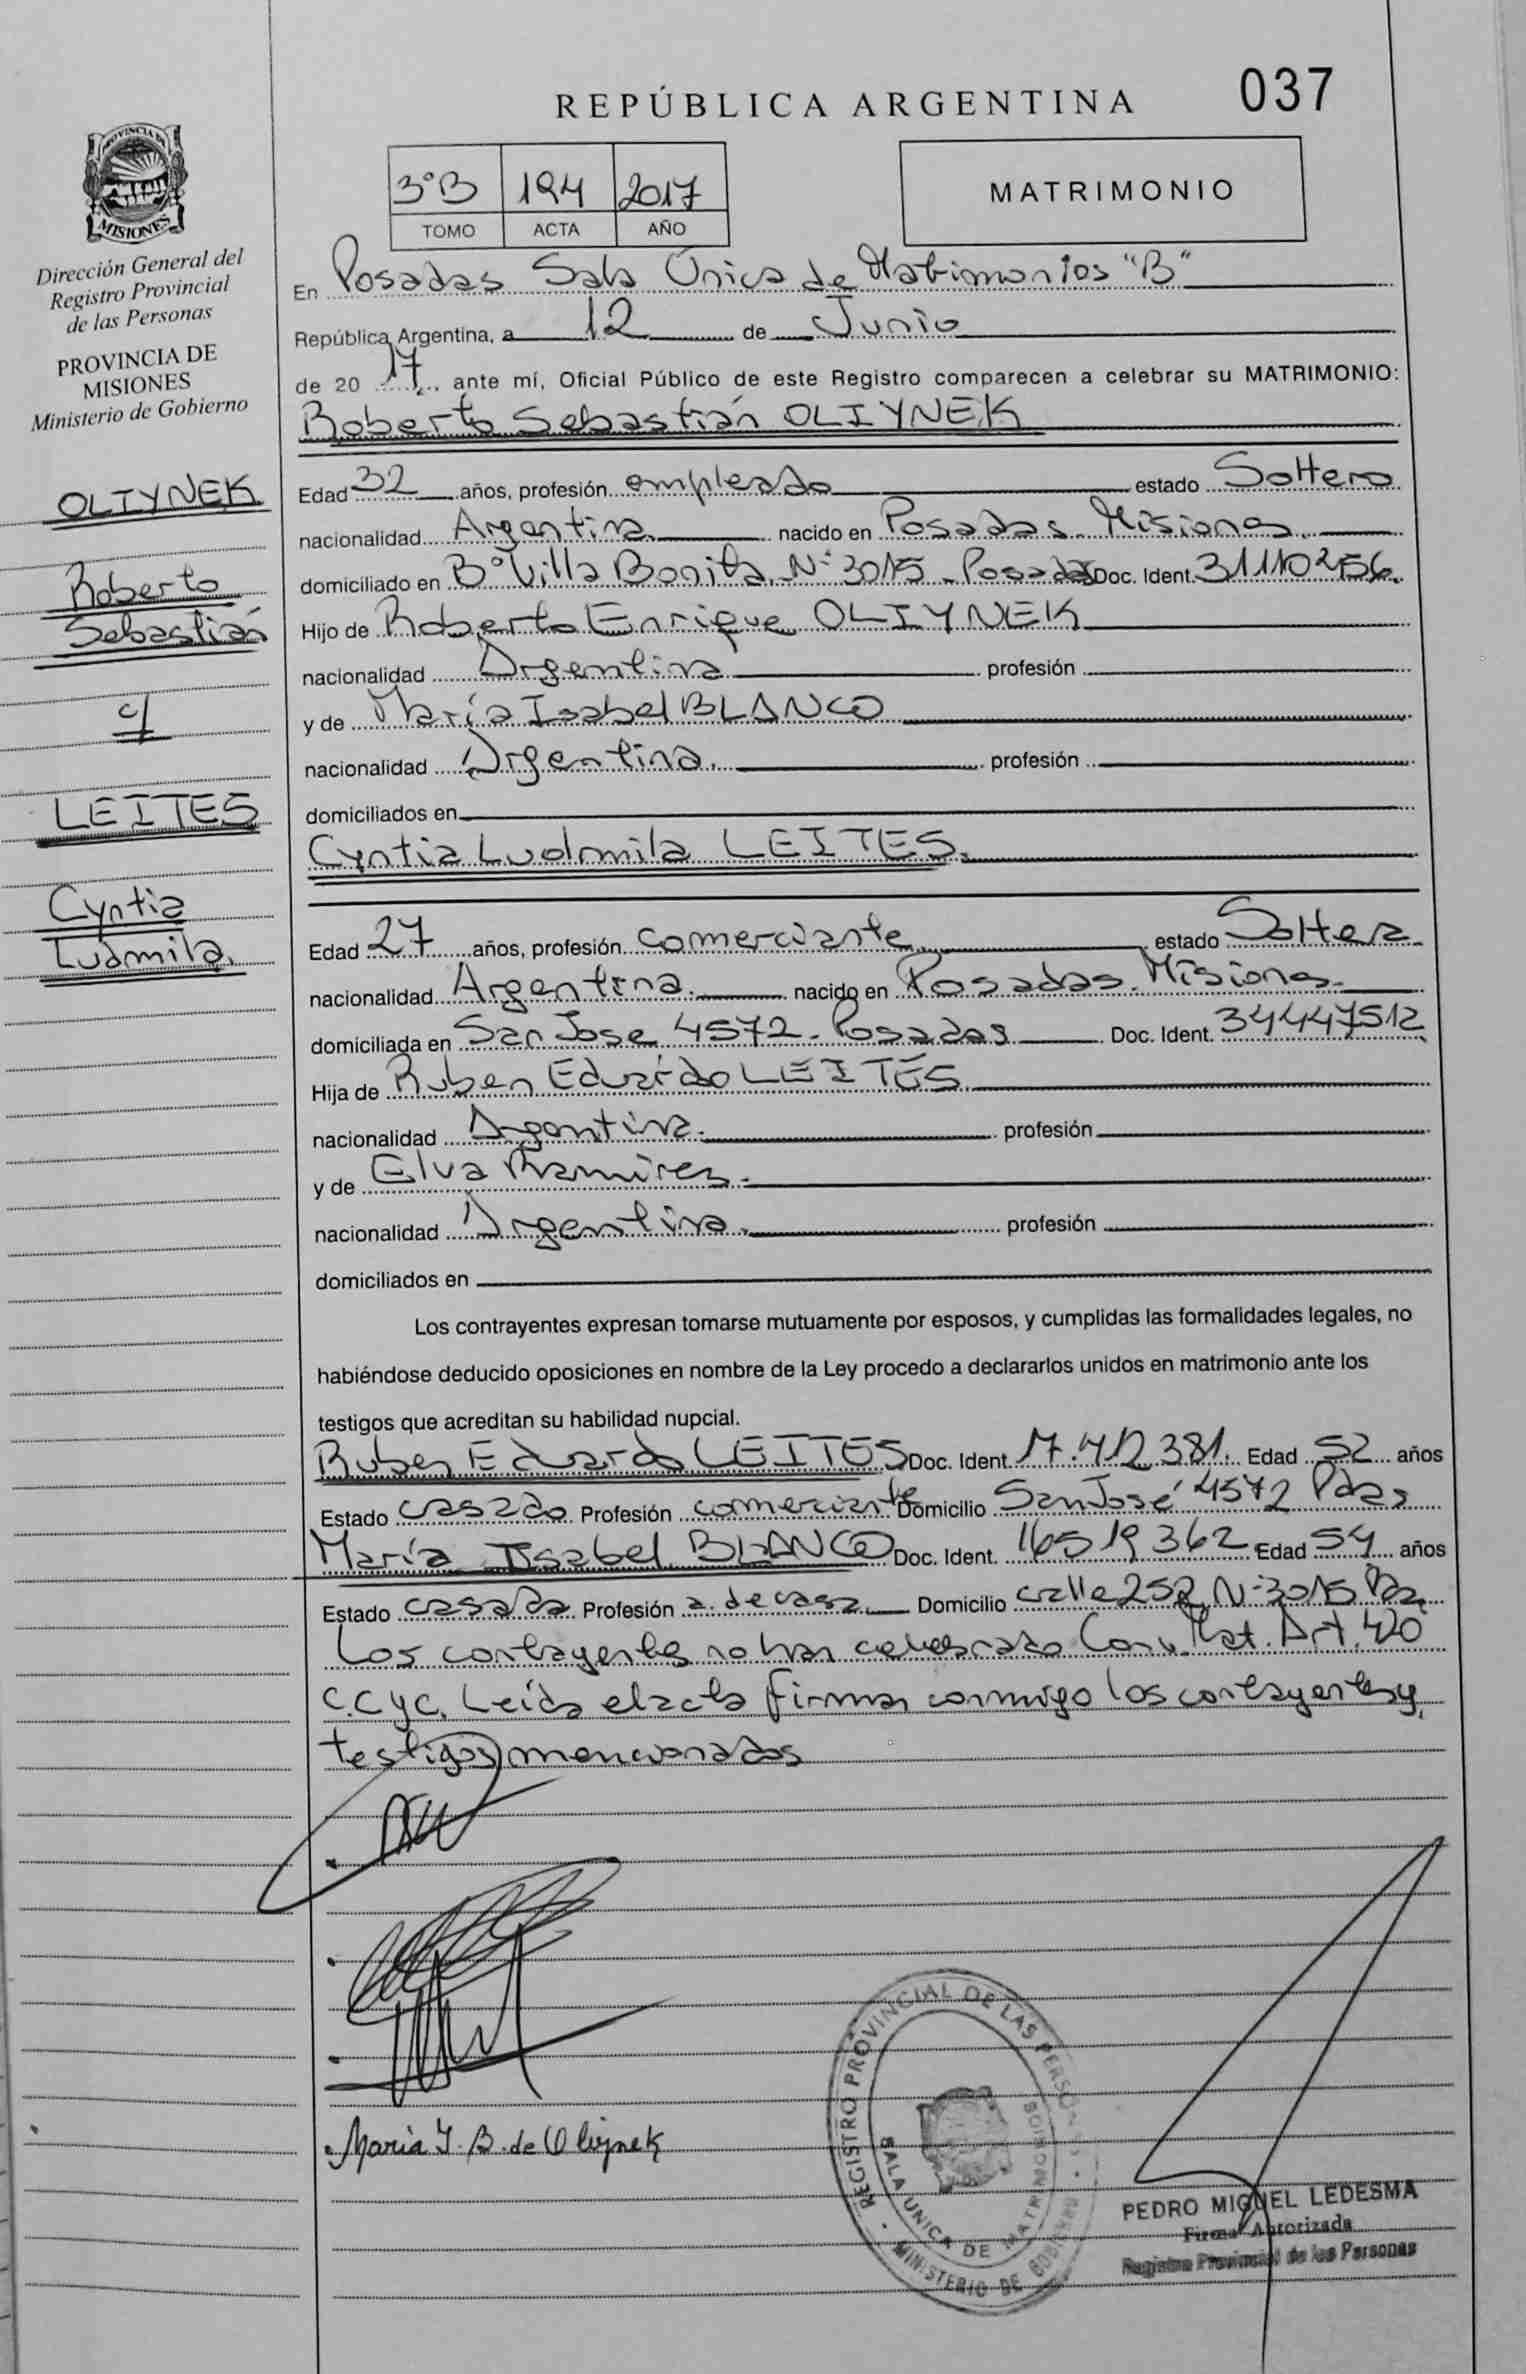 REPÚBLICA ARGENTINA
037
PROVINCIA DE
MISIONES
Dirección General del
Registro Provincial
de las Personas
PROVINCIA DE
MISIONES
Ministerio de Gobierno
3°B 194 2017
TOMO ACTA AÑO
MATRIMONIO
En Posadas Sala Única de Matrimonios "B"
República Argentina, a 12 de Junio
de 20 17 ante mí, Oficial Público de este Registro comparecen a celebrar su MATRIMONIO:
Roberto Sebastián OLIYNEK
OLIYNEK
Roberto
Sebastián
c/
LEITES
Cyntia
Ludmila.
Edad 32 años, profesión empleado estado Soltero
nacionalidad Argentina nacido en Posadas Misiones
domiciliado en B° Villa Bonita N° 3015 - Posadas Doc. Ident. 31110256.
Hijo de Roberto Enrique OLIYNEK
nacionalidad Argentina profesión
y de María Isabel BLANCO
nacionalidad Argentina. profesión
domiciliados en
Cyntia Ludmila LEITES.
Edad 27 años, profesión comerciante estado Soltera
nacionalidad Argentina. nacido en Posadas Misiones
domiciliada en San Jose 4572 - Posadas Doc. Ident. 34447512
Hija de Ruben Eduardo LEITES
nacionalidad Argentina. profesión
y de Elva Ramirez.
nacionalidad Argentina. profesión
domiciliados en
Los contrayentes expresan tomarse mutuamente por esposos, y cumplidas las formalidades legales, no
habiéndose deducido oposiciones en nombre de la Ley procedo a declararlos unidos en matrimonio ante los
testigos que acreditan su habilidad nupcial.
Ruben Eduardo LEITES Doc. Ident. 17.412.381. Edad 52 años
Estado casado Profesión comerciante Domicilio San José 4572 Pdas
María Isabel BLANCO Doc. Ident. 16519362 Edad 54 años
Estado casada Profesión a. de casa Domicilio calle 252 N° 3015
Los contrayentes no han celebrado Conv. Mat. Art. 420
C.C y C. Leída el acta firman conmigo los contrayentes y
testigos mencionados
Maria I. B. de Oliynek
REGISTRO PROVINCIAL DE LAS PERSONAS
SALA UNICA DE MATRIMONIOS
MINISTERIO DE GOBIERNO
PEDRO MIGUEL LEDESMA
Firma Autorizada
Registro Provincial de las Personas